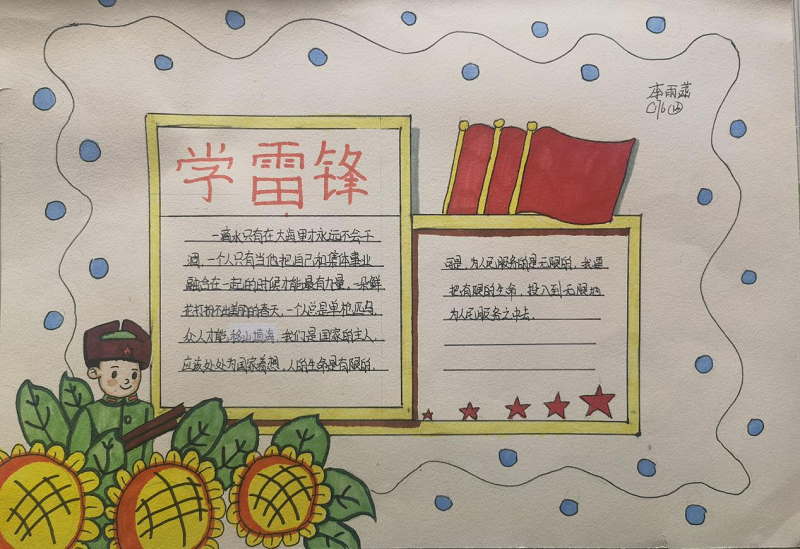 李雨
C176
学雷锋
一滴水只有在大海里才永远不会干
涸，一个人只有当他把自己和集体事业
融合在一起的时候才能最有力量，一朵鲜
花打扮不出美丽的春天，一个人总是单枪匹马，
众人才能移山填海，我们是国家的主人，
应该处处为国家着想，人的生命是有限的，
可是，为人民服务的是无限的，我要
把有限的生命，投入到无限地
为人民服务之中去．